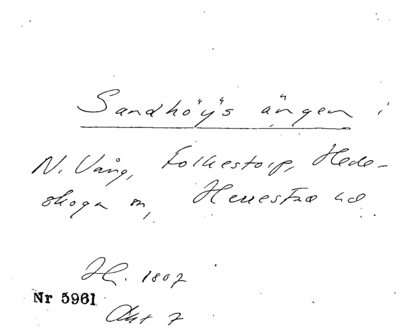 Sandhöÿs ängen i
N. Vång, Folkestorp, Hede-
skoga m, Herrestad hd
H. 1807
Nr 5961
Akt 7